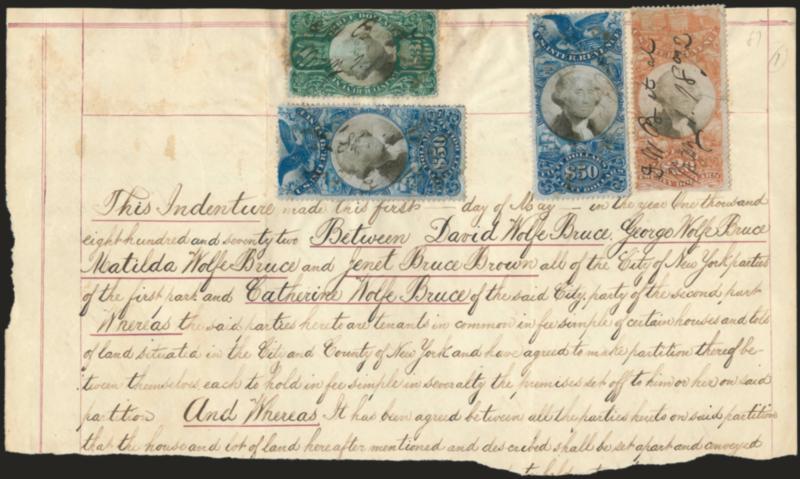 87
1
U.S. INTER. REVENUE
U.S. INTER. REVENUE
$50
$50
DOLLARS
1872
This Indenture made this first day of May in the year One thousand
eight hundred and seventy two Between David Wolfe Bruce, George Wolfe Bruce
Matilda Wolfe Bruce and Jenet Bruce Brown all of the City of New York parties
of the first park and Catherine Wolfe Bruce of the said City, party of the second part
Whereas the said parties hereto are tenants in common in fee simple of certain houses and lots
of land situated in the City and County of New York and have agreed to make partition thereof be-
tween themselves each to hold in fee simple in severalty the premises set off to him or her on said
partition And Whereas It has been agreed between all the parties hereto on said partition
that the house and lot of land hereafter mentioned and described shall be set apart and conveyed